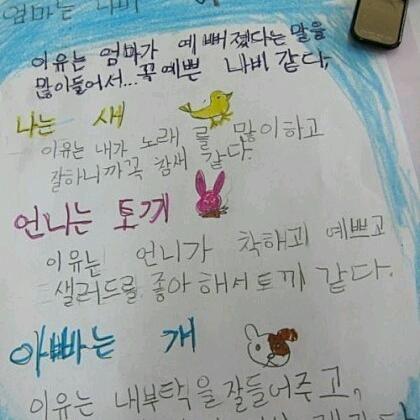 엄마는 나비
이유는 엄마가 예뻐졌다는 말을
많이들어서...꼭예쁜 나비 같다,
나는 새
이유는 내가 노래를 많이하고
잘하니까꼭 참새 같다.
언니는 토끼
이유는 언니가 착해고 예쁘고
샐러드를 좋아해서토끼 같다.
아빠는 개
이유는 내부탁을잘들어주고,